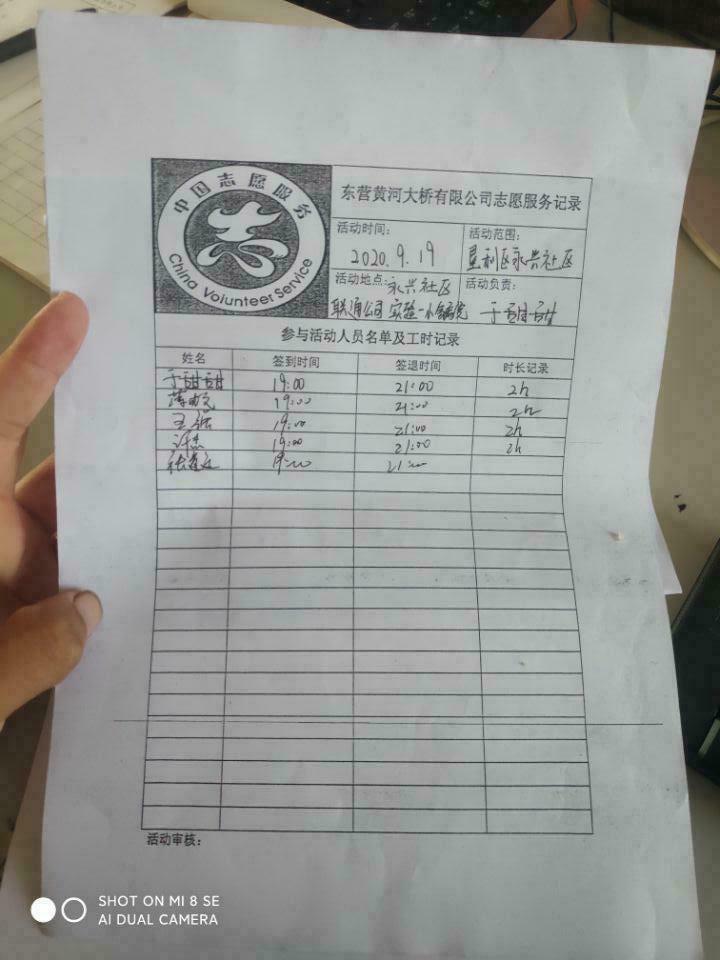 中国志愿服务
志
China Volunteer Service
东营黄河大桥有限公司志愿服务记录
活动时间：
2020.9.19
活动范围：
垦利区永兴社区
活动地点：永兴社区
联通公司 实验一小
活动负责：
于甜甜
参与活动人员名单及工时记录
姓名 签到时间 签退时间 时长记录
于甜甜 19:00 21:00 2h
19:00 21:00 2h
王 19:00 21:00 2h
许杰 19:00 21:00 2h
19:00 21:00
活动审核：
SHOT ON MI 8 SE
AI DUAL CAMERA